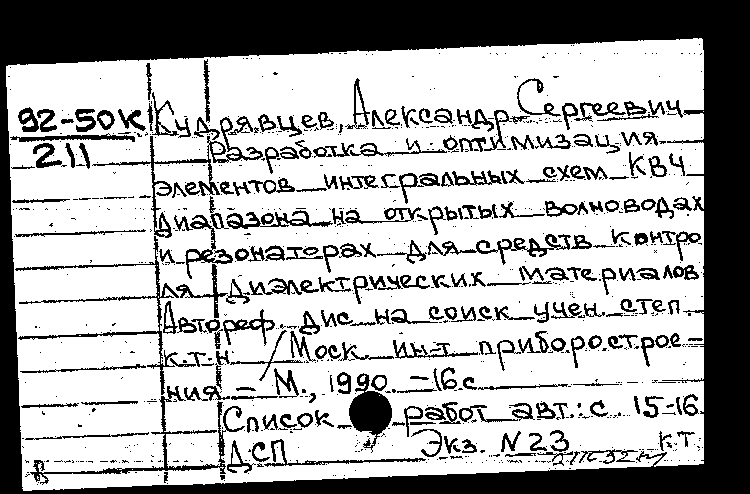 92-50К Кудрявцев, Александр Сергеевич
211 Разработка и оптимизация
элементов интегральных схем КВЧ
диапазона на открытых волноводах
и резонаторах для средств контро
ля диэлектрических материалов
Автореф. дис на соиск учен. степ.
к.т.н / Моск. ин-т приборострое-
ния - М., 1990. -16 с
Список работ авт.: с 15-16
ДСП Экз. N 23 к.т
В